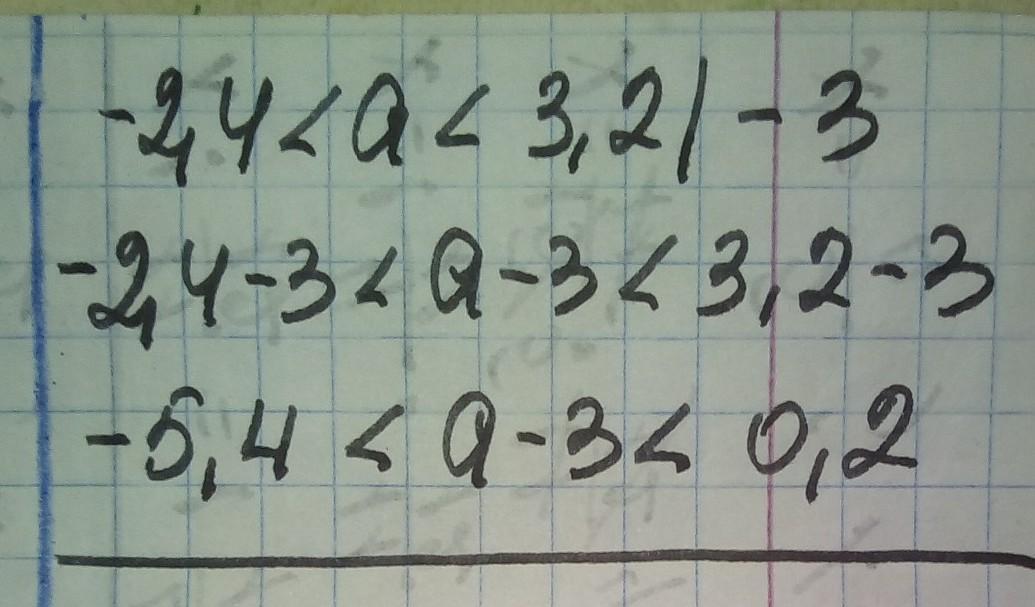 -2,4 < a < 3,2 | - 3
-2,4 - 3 < a - 3 < 3,2 - 3
-5,4 < a - 3 < 0,2